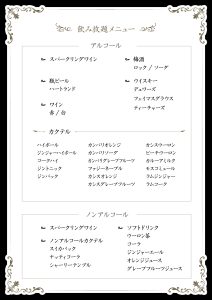 飲み放題メニュー
アルコール
スパークリングワイン
瓶ビール
ハートランド
ワイン
赤 / 白
梅酒
ロック / ソーダ
ウイスキー
デュワーズ
フェイマスグラウス
ティーチャーズ
カクテル
ハイボール
ジンジャーハイボール
コークハイ
ジントニック
ジンバック
カンパリオレンジ
カンパリソーダ
カンパリグレープフルーツ
ファジーネーブル
カシスオレンジ
カシスグレープフルーツ
カシスウーロン
ピーチウーロン
カルーアミルク
モスコミュール
ラムジンジャー
ラムコーク
ノンアルコール
スパークリングワイン
ノンアルコールカクテル
スイカバック
サッティコーラ
シャーリーテンプル
ソフトドリンク
ウーロン茶
コーラ
ジンジャーエール
オレンジジュース
グレープフルーツジュース